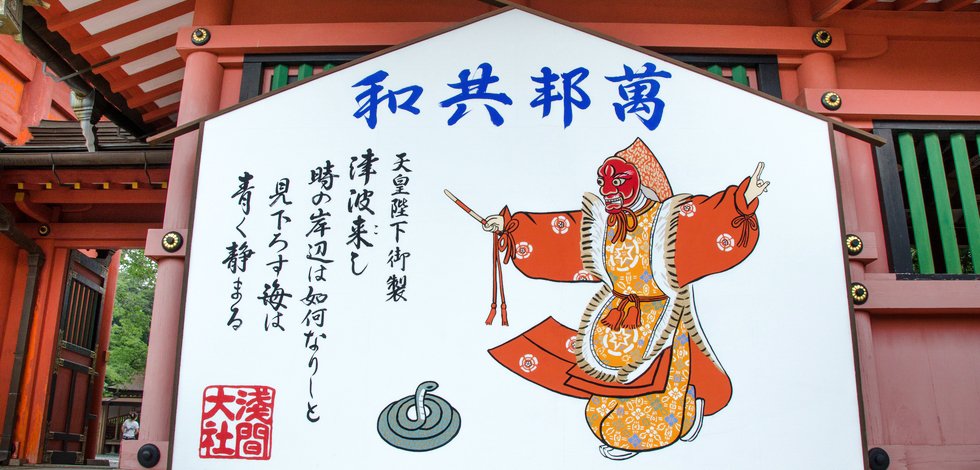 萬邦共和
天皇陛下御製
津波来し
時の岸辺は如何なりしと
見下ろす海は
青く静まる
浅間
大社